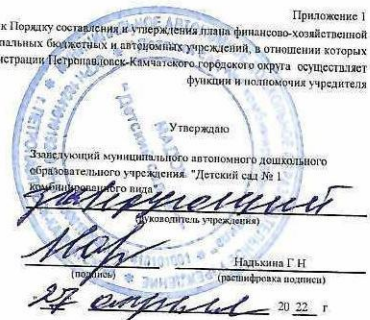 Приложение 1
к Порядку составления и утверждения плана финансово-хозяйственной
пальных бюджетных и автономных учреждений, в отношении которых
страции Петропавловск-Камчатского городского округа осуществляет
функции и полномочия учредителя
Утверждаю
Ззаведующий муниципального автономного дошкольного
образовательного учреждения "Детский сад № 1
комбинированного вида"
Заведующий
(руководитель учреждения)
Надькина Г Н
(подпись) (расшифровка подписи)
27 апреля 20 22 г